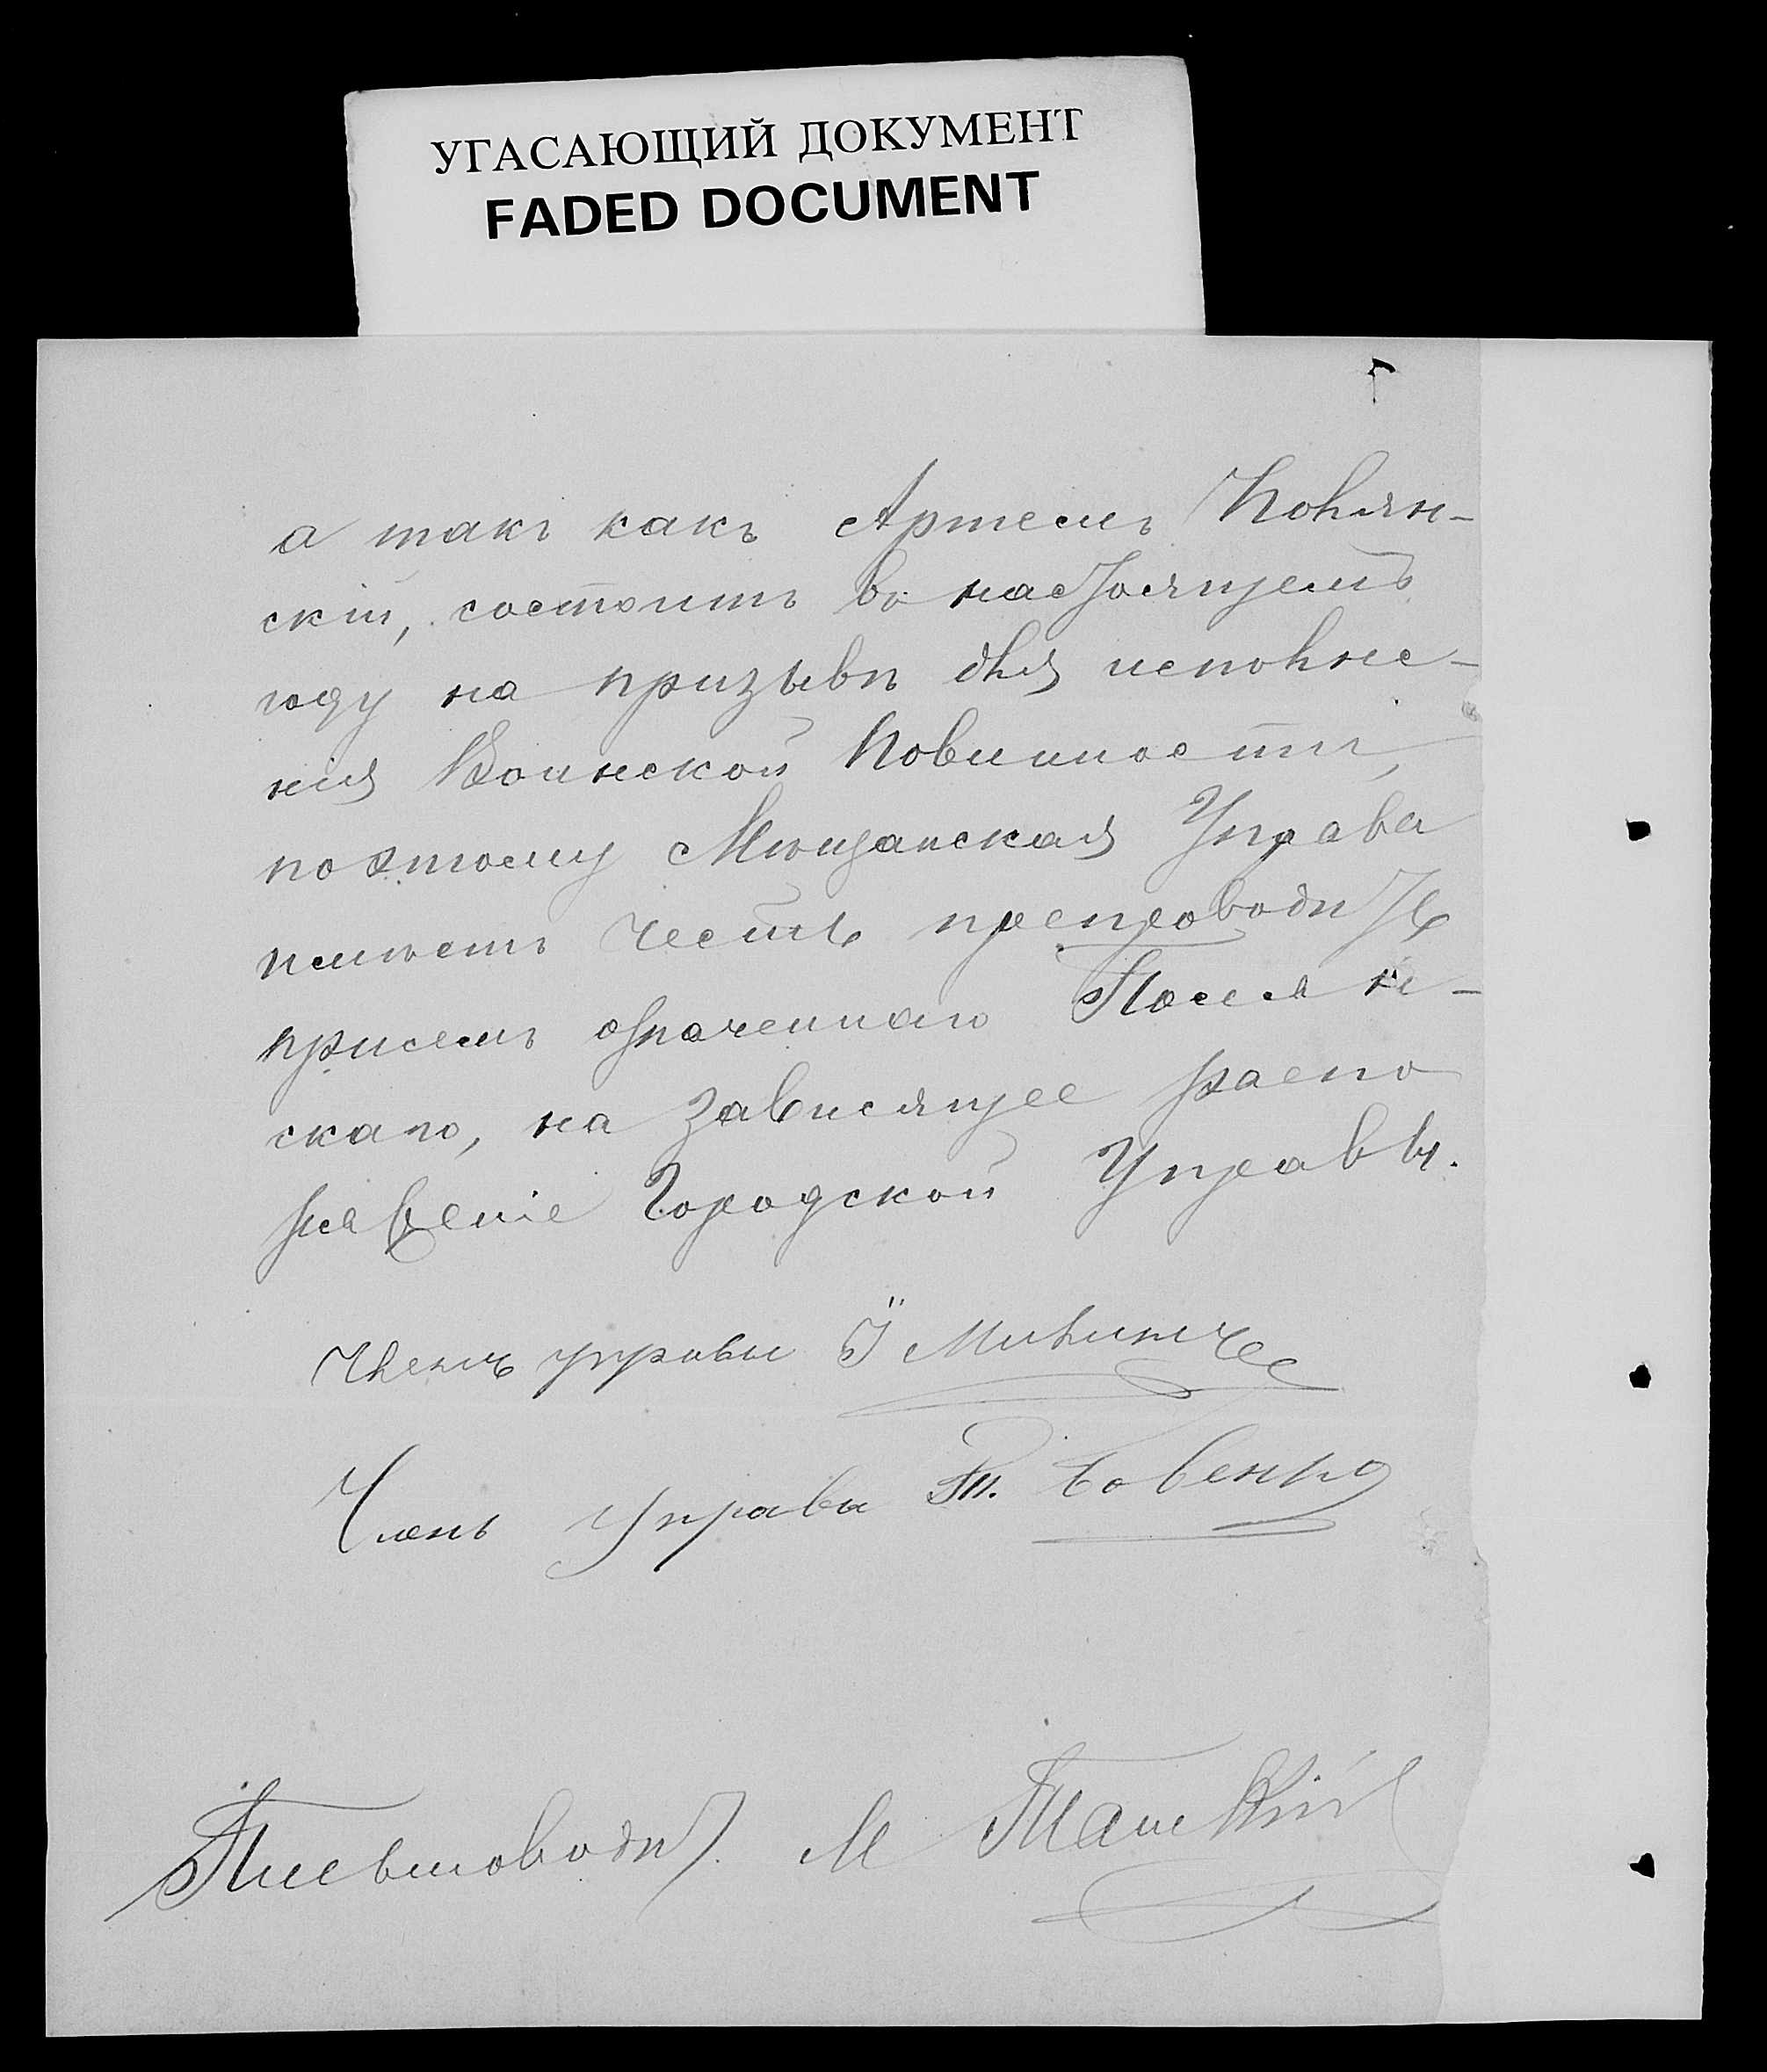 УГАСАЮЩИЙ ДОКУМЕНТ
FADED DOCUMENT
а такъ какъ Артемъ Полян-
скій, состоитъ въ настоящемъ
году на призывѣ для исполне-
нія Воинской Повинности,
поэтому Мѣщанская Управа
имѣетъ честь препроводить
присемъ означеннаго Полян-
скаго, на зависящее распо
ряженіе Городской Управы.
Членъ управы І
Членъ Управы
Письмоводит. М